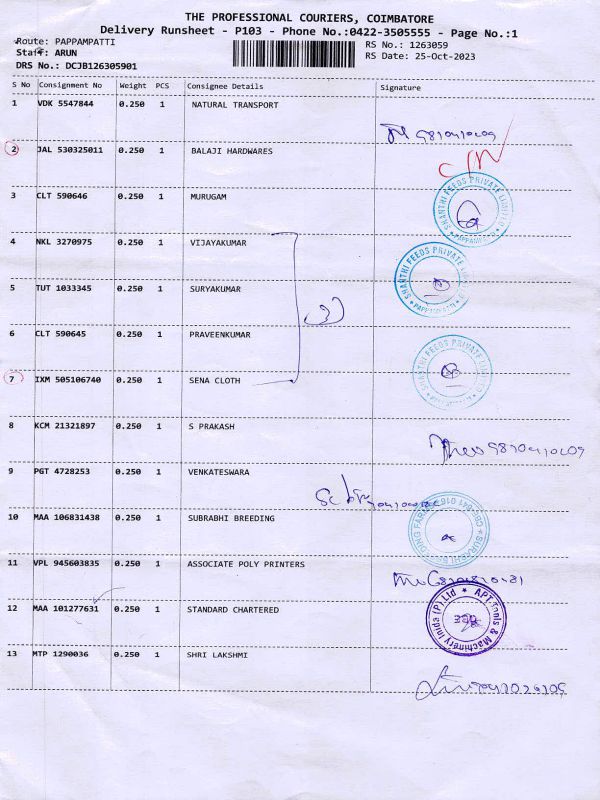 THE PROFESSIONAL COURIERS, COIMBATORE
Delivery Runsheet - P103 - Phone No.:0422-3505555 - Page No.:1
Route: PAPPAMPATTI
RS No.: 1263059
Staff: ARUN
RS Date: 25-Oct-2023
DRS No.: DCJB126305901
S No Consignment No Weight PCS Consignee Details Signature
1 VDK 5547844 0.250 1 NATURAL TRANSPORT
2 JAL 530325011 0.250 1 BALAJI HARDWARES
3 CLT 590646 0.250 1 MURUGAM
SHANTHI FEEDS PRIVATE LIMITED
4 NKL 3270975 0.250 1 VIJAYAKUMAR
SHANTHI FEEDS PRIVATE LIMITED
5 TUT 1033345 0.250 1 SURYAKUMAR
6 CLT 590645 0.250 1 PRAVEENKUMAR
SHANTHI FEEDS PRIVATE LIMITED
7 IXM 505106740 0.250 1 SENA CLOTH
8 KCM 21321897 0.250 1 S PRAKASH
9 PGT 4728253 0.250 1 VENKATESWARA
10 MAA 106831438 0.250 1 SUBRABHI BREEDING
11 VPL 945603835 0.250 1 ASSOCIATE POLY PRINTERS
12 MAA 101277631 0.250 1 STANDARD CHARTERED
APT Tools & Machinery India (P) Ltd
13 MTP 1290036 0.250 1 SHRI LAKSHMI